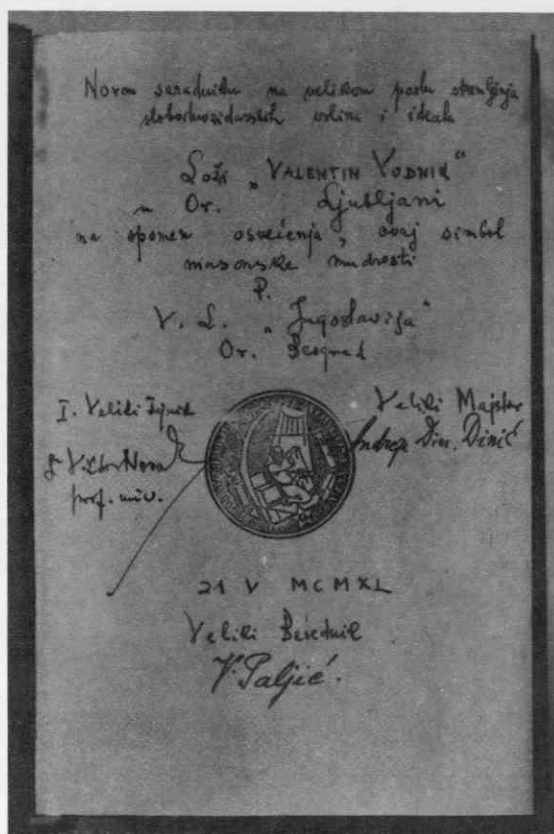 Novom saradniku na velikom poslu ostvarenja
slobodnozidarskih vrlina i ideala
Loži „VALENTIN VODNIK“
u Or. Ljubljani
na spomen osvećenja, ovaj simbol
masonske mudrosti
P.
V. L. „Jugoslavija“
Or. Beograd
I. Veliki Tajnik
Dr Viktor Novak
prof. univ.
Veliki Majstor
Andreja Din. Dinić
21 V MCMXL
Veliki Besednik
V. Paljić.